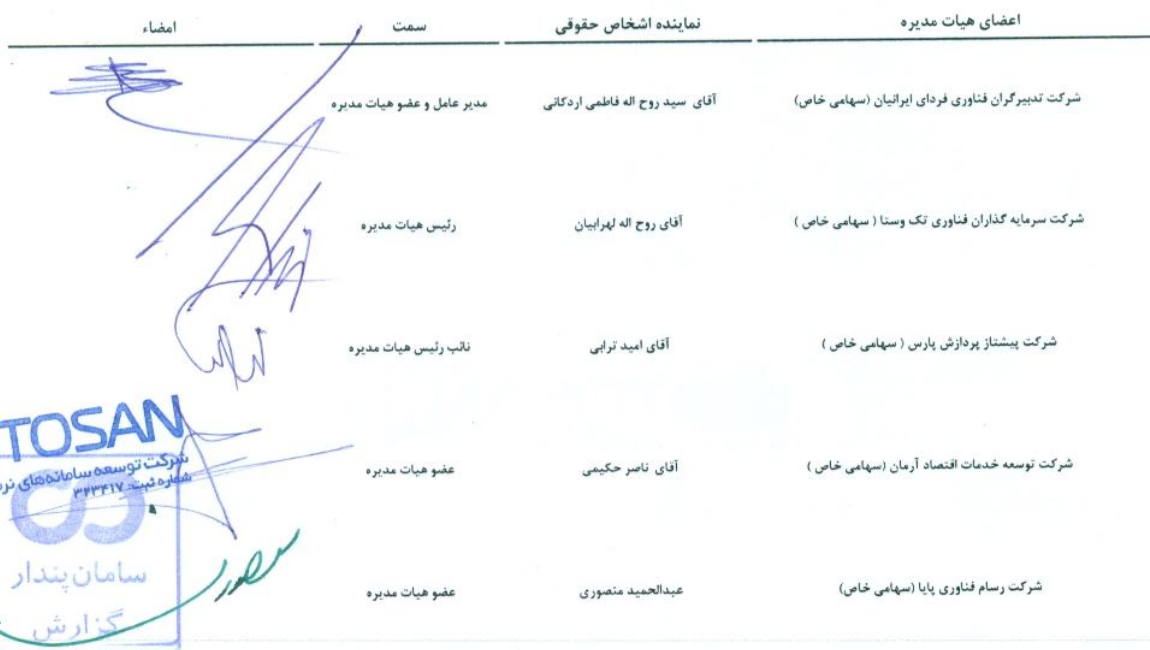 اعضای هیات مدیره	نماینده اشخاص حقوقی	سمت	امضاء
شرکت تدبیرگران فناوری فردای ایرانیان (سهامی خاص)	آقای سید روح اله فاطمی اردکانی	مدیر عامل و عضو هیات مدیره
شرکت سرمایه گذاران فناوری تک وستا ( سهامی خاص )	آقای روح اله لهرابیان	رئیس هیات مدیره
شرکت پیشتاز پردازش پارس ( سهامی خاص )	آقای امید ترابی	نائب رئیس هیات مدیره
شرکت توسعه خدمات اقتصاد آرمان (سهامی خاص )	آقای ناصر حکیمی	عضو هیات مدیره
شرکت رسام فناوری پایا (سهامی خاص)	عبدالحمید منصوری	عضو هیات مدیره
TOSAN
شرکت توسعه سامانه‌های
شماره ثبت: ۳۲۳۴۱۷
سامان پندار
گزارش